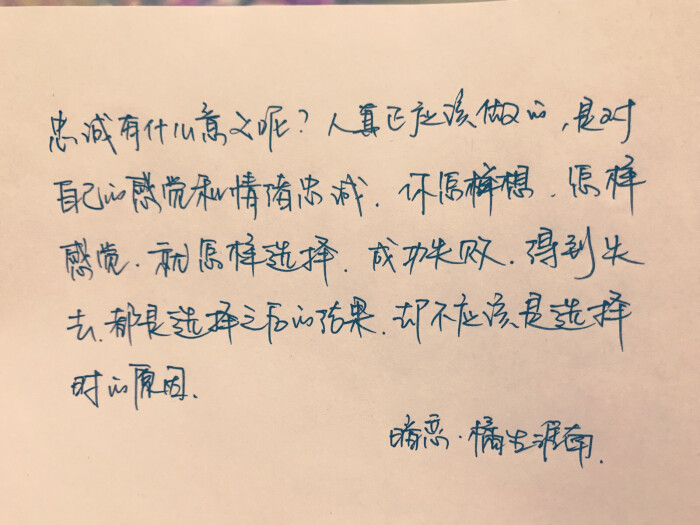 忠诚有什么意义呢？人真正应该做的，是对
自己的感觉和情绪忠诚．你怎样想．怎样
感觉．就怎样选择．成功失败．得到失
去．都是选择之后的结果．却不应该是选择
时的原因．
暗恋·橘生淮南．